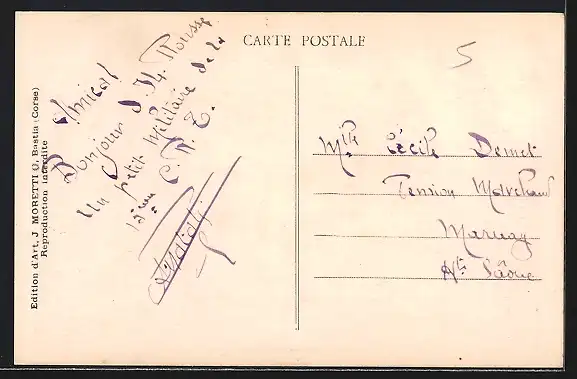 CARTE POSTALE
5
Amical
Bonjour d'Il. Rousse
Un petit Militaire de la
12eme C. R. T.
Mlle Cécile Demet
Pension Marchand
Marnay
Hte Saône
Edition d'Art, J. MORETTI (), Bastia (Corse)
Reproduction interdite